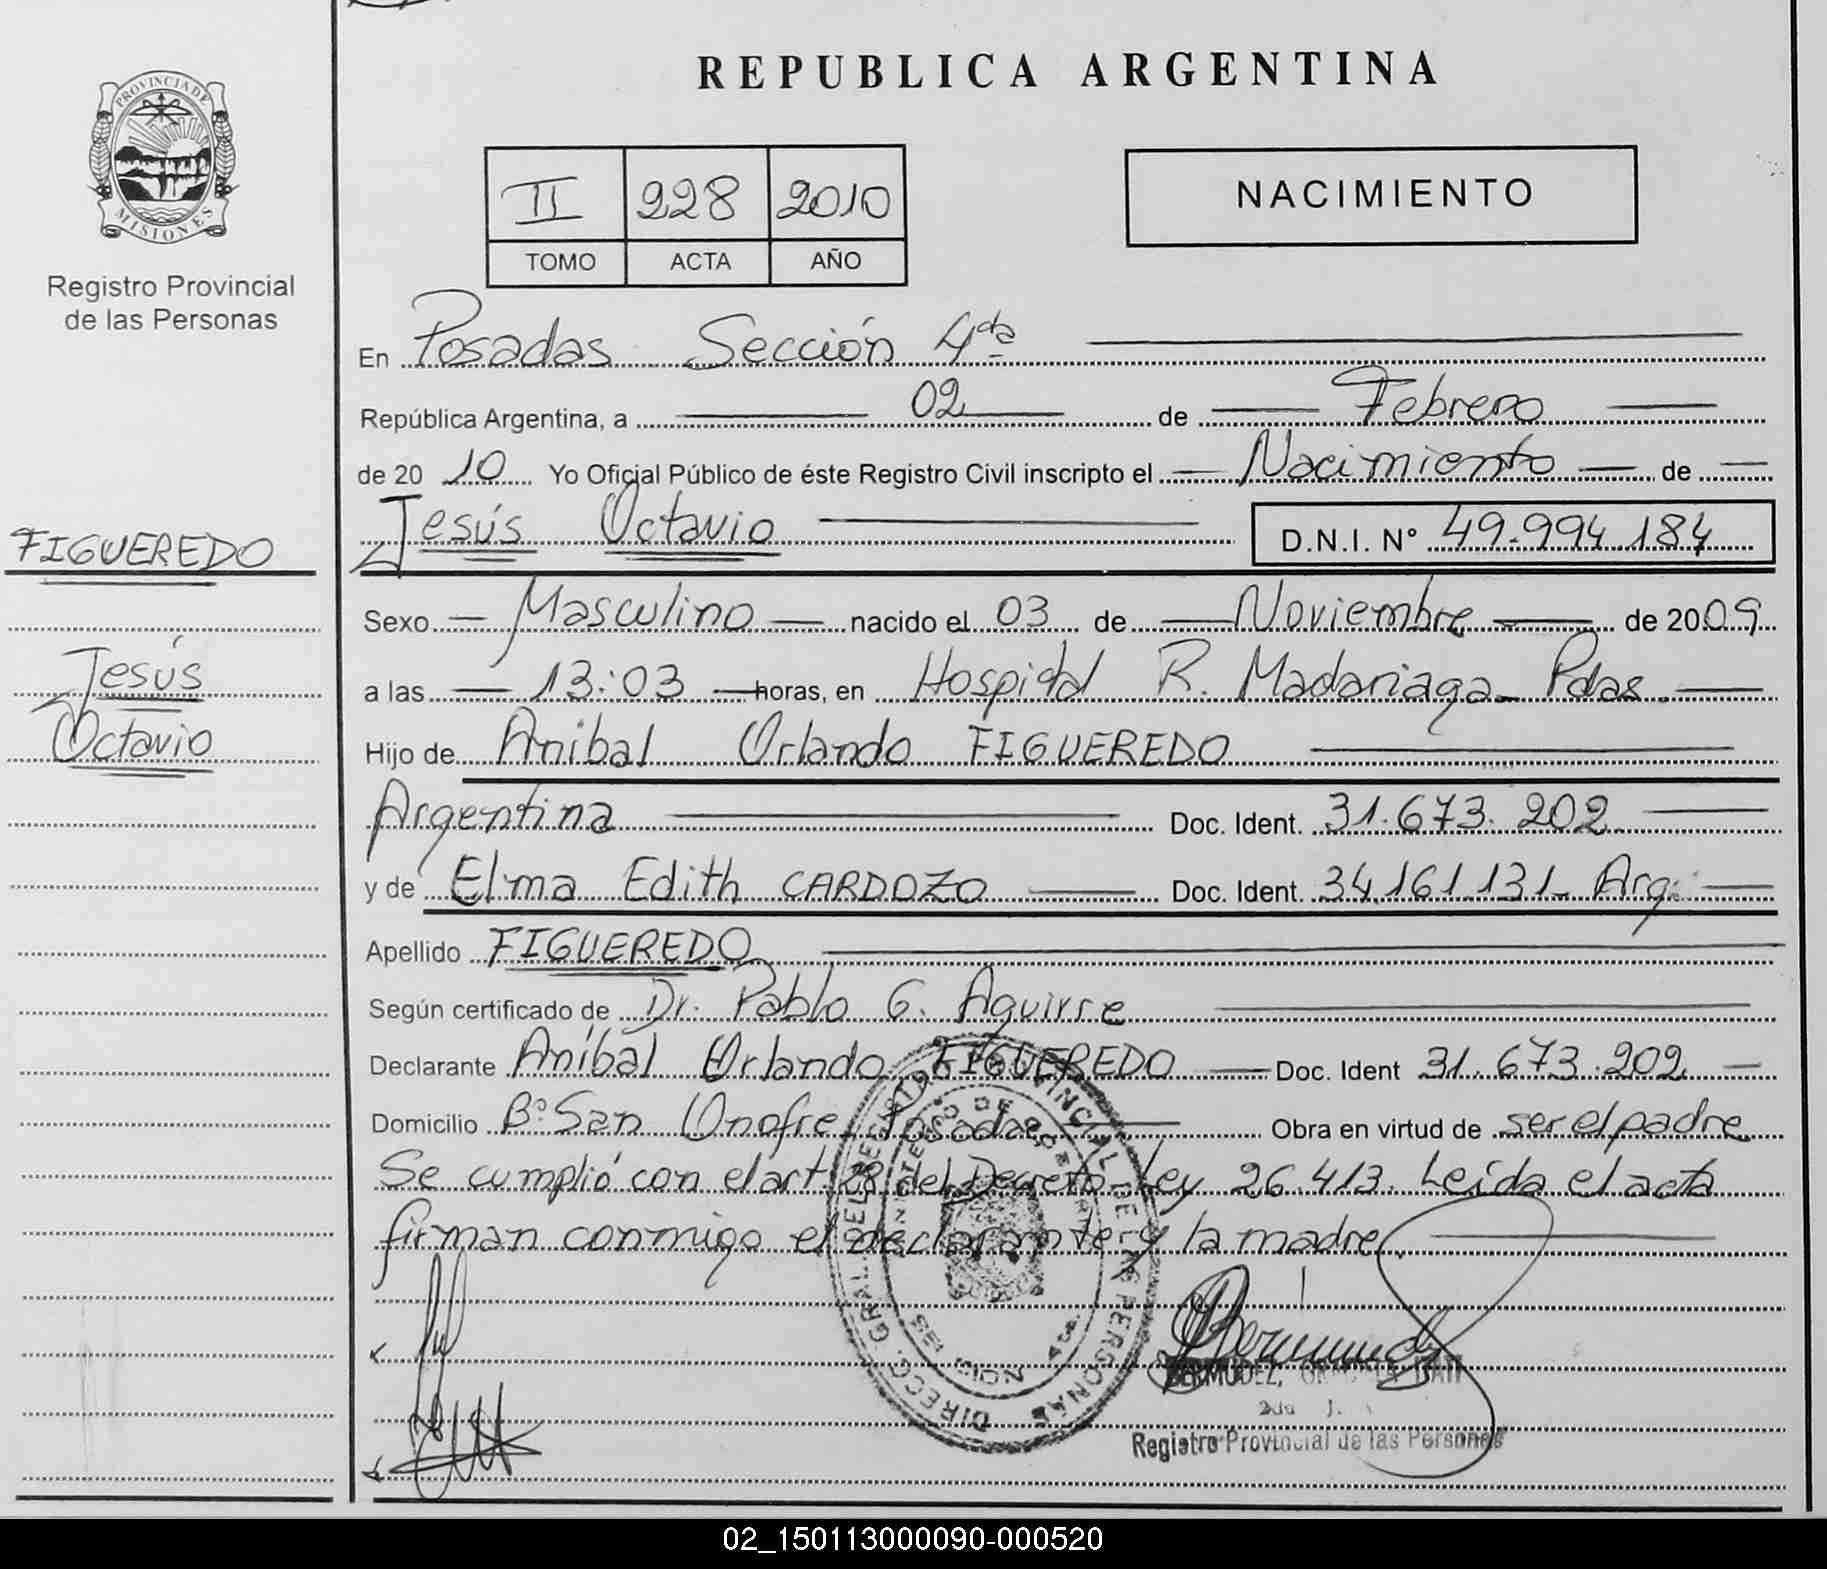 REPUBLICA ARGENTINA
PROVINCIA DE
MISIONES
Registro Provincial
de las Personas
II 228 2010
TOMO ACTA AÑO
NACIMIENTO
En Posadas Sección 4ta
República Argentina, a 02 de Febrero
de 20 10 Yo Oficial Público de éste Registro Civil inscripto el Nacimiento de
Jesús Octavio D.N.I. N° 49.994.184
FIGUEREDO
Jesús
Octavio
Sexo Masculino nacido el 03 de Noviembre de 2009
a las 13:03 horas, en Hospital R. Madariaga Pdas.
Hijo de Anibal Orlando FIGUEREDO
Argentina Doc. Ident. 31.673.202
y de Elma Edith CARDOZO Doc. Ident. 34.161.131 Arg.
Apellido FIGUEREDO
Según certificado de Dr. Pablo G. Aguirre
Declarante Aníbal Orlando FIGUEREDO Doc. Ident 31.673.202
Domicilio B° San Onofre, Posadas Obra en virtud de ser el padre
Se cumplió con el art. 28 del Decreto Ley 26.413. Leída el acta
firman conmigo el declarante y la madre.
BERMUDEZ,
Registro Provincial de las Personas
02_150113000090-000520